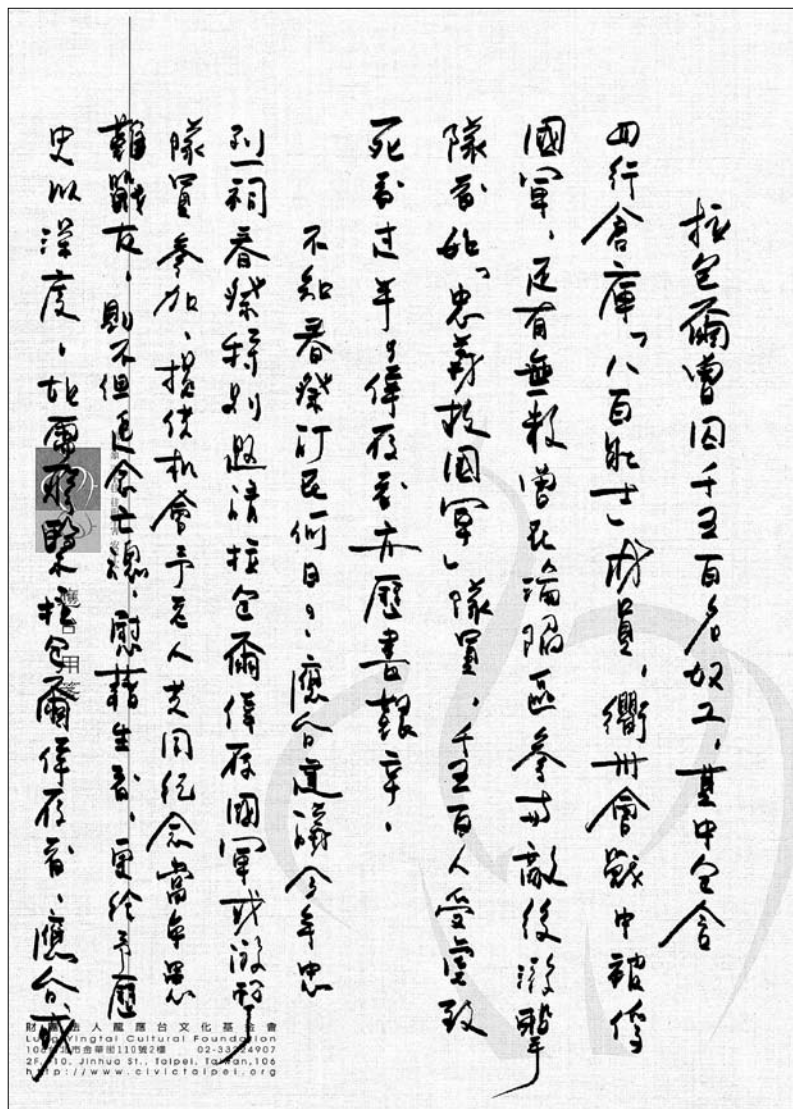 拉包爾曾囚千五百名奴工,其中包含
四行倉庫「八百壯士」成員,衢州會戰中被俘
國軍,還有無數曾在淪陷區參与敵後游擊
隊者如「忠義救國軍」隊員。千五百人受虐致
死者过半。倖存者亦歷盡艱辛。
不知春祭訂在何日?應台建議今年忠
烈祠春祭特別邀請拉包爾倖存國軍或游擊
隊員參加,提供机會予老人共同紀念當年患
難戰友,則不但追念亡魂,慰藉生者,更給予歷
史以深度。如需聯繫拉包爾倖存者,應台或
應台 用箋
財團法人龍應台文化基金會
Lung Yingtai Cultural Foundation
106台北市金華街110號2樓 02-33224907
2F, 110, Jinhua St., Taipei, Taiwan,106
http://www.civictaipei.org